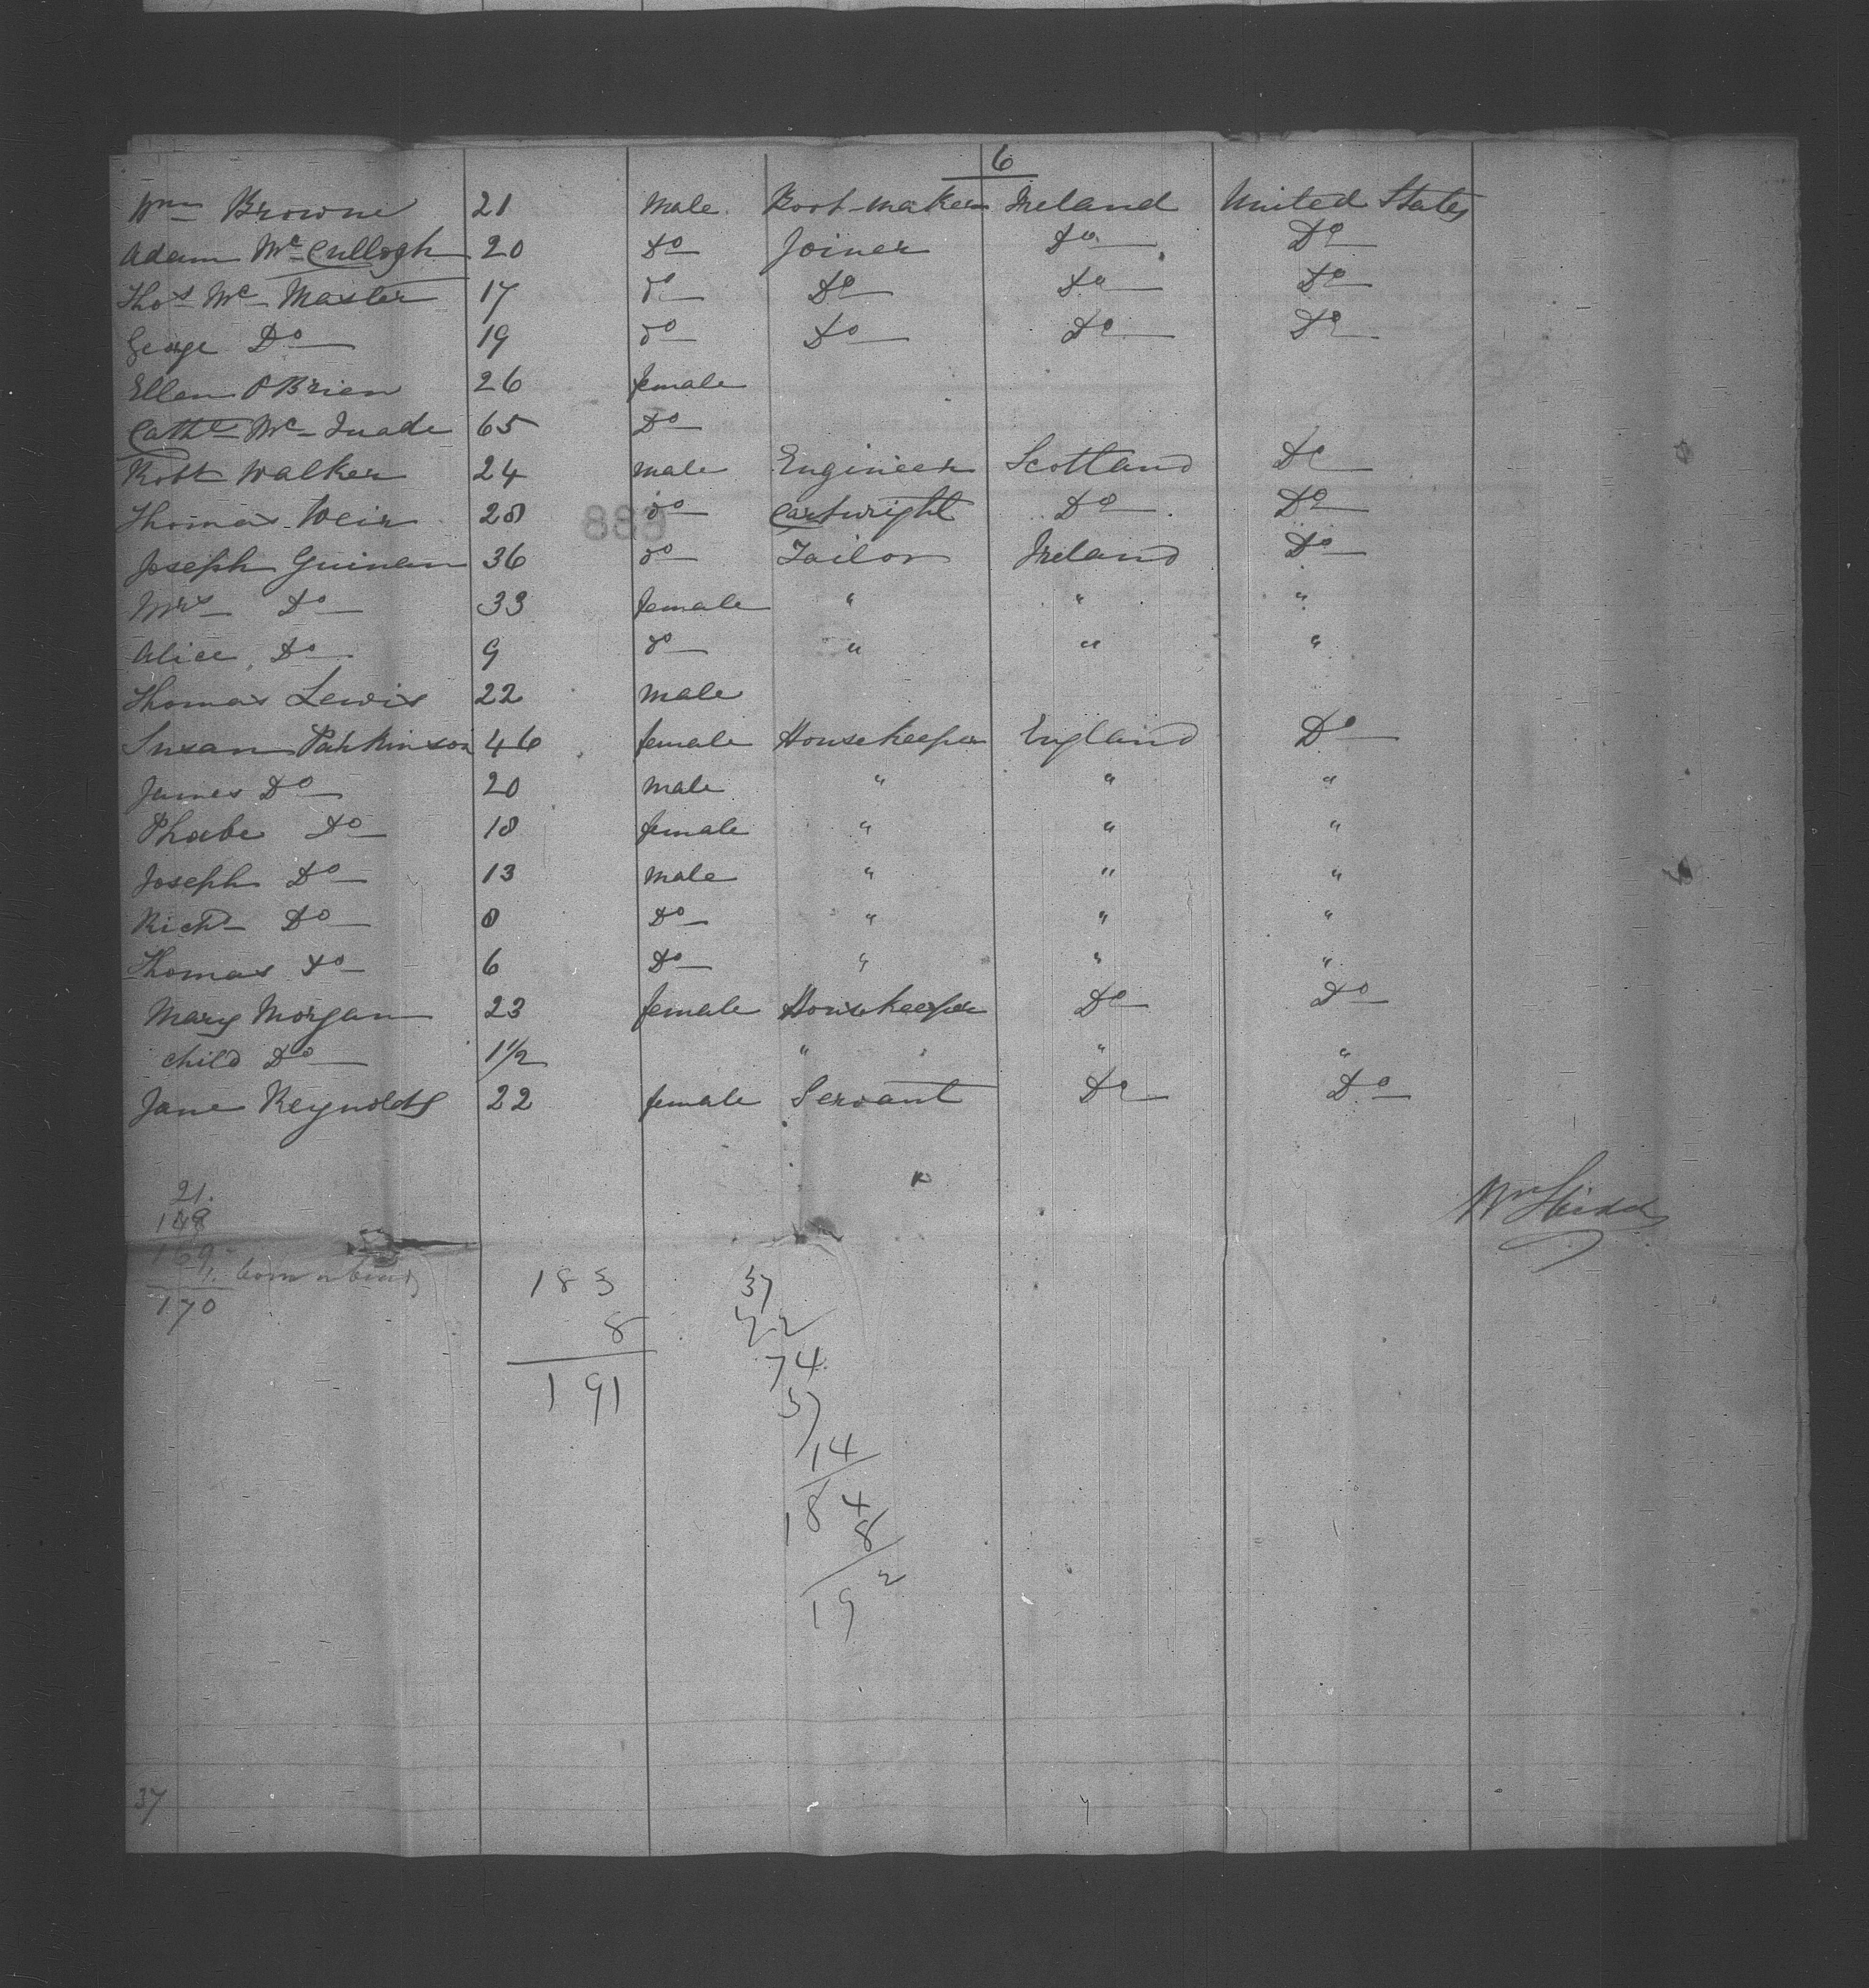 6
Wm Browne 21 Male Boot-maker Ireland United States
Adam Mc Cullogh 20 Do Joiner Do Do
Thos Mc Master 17 do Do Do Do
George Do 19 do Do Do Do
Ellen O Brien 26 female
Cathe Mc Quade 65 Do
Robt Walker 24 male Engineer Scotland Do
Thomas Weir 28 do Cartwright Do Do
Joseph Guinan 36 do Tailor Ireland Do
Mrs Do 33 female " " "
Alice Do 9 do " " "
Thomas Lewis 22 Male
Susan Parkinson 46 female Housekeeper England Do
James Do 20 Male " " "
Phoebe Do 18 female " " "
Joseph Do 13 Male " " "
Richd Do 8 Do " " "
Thomas Do 6 Do " " "
Mary Morgan 23 female Housekeeper Do Do
child Do 1 1/2 " " "
Jane Reynolds 22 female Servant Do Do
21.
148
169
1. born
170
Wm
183
8
191
37
22
74
37
14
184
8
192
37